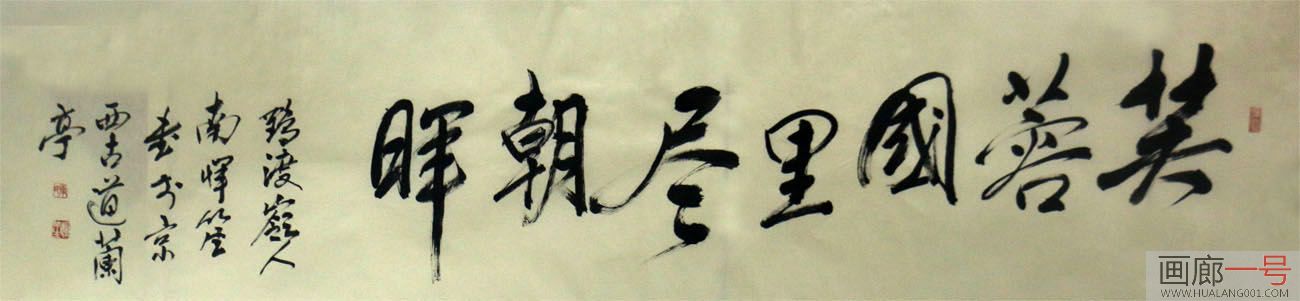 芙蓉國里尽朝晖
野渡嶺人
南恽笙
書于京
西古道蘭
亭
画廊一号
WWW.HUALANG001.COM